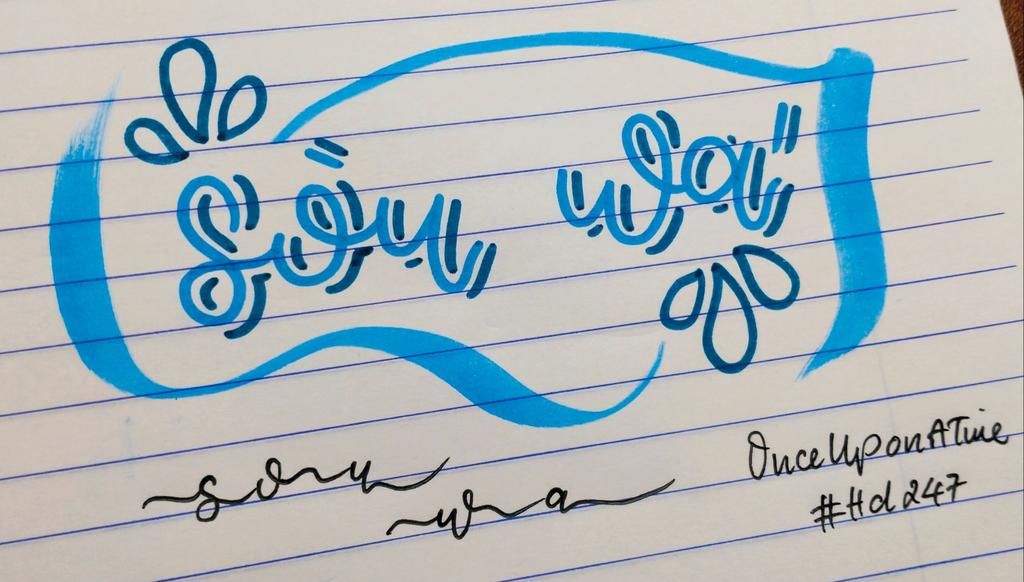 Sou wa
sou
wa
OnceUponATime
#Hd247